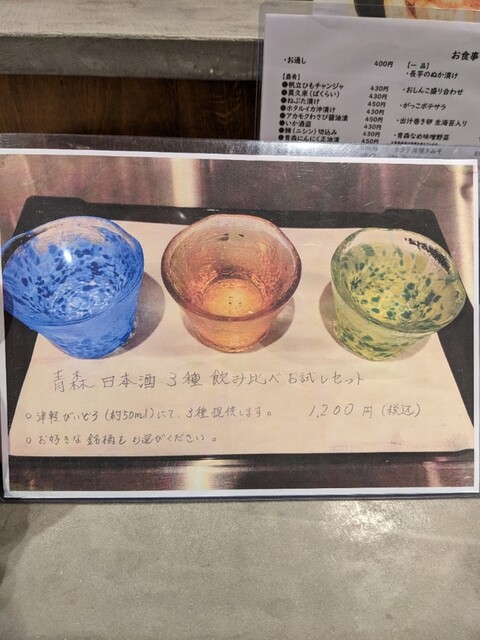 お食事
・お通し 400円
【一 品】
・長芋のぬか漬け
【鼻肴】
●帆立ひもチャンジャ 430円
●莫久来（ばくらい） 430円
●ねぶた漬け 450円
●ホタルイカ沖漬け 430円
●アカモクわさび醤油漬 450円
●いか酒盗 430円
●鰊（ニシン）切込み 430円
●青森にんにく正油漬 450円
・おしんこ盛り合わせ
・がっこポテサラ
・出汁巻き卵 生海苔入り
・青森なめ味噌野菜
青森 日本酒 3種 飲み比べ お試しセット
○ 津軽びいどろ（約50ml）にて、3種提供します。 1,200円（税込）
○ お好きな銘柄をお選びください。